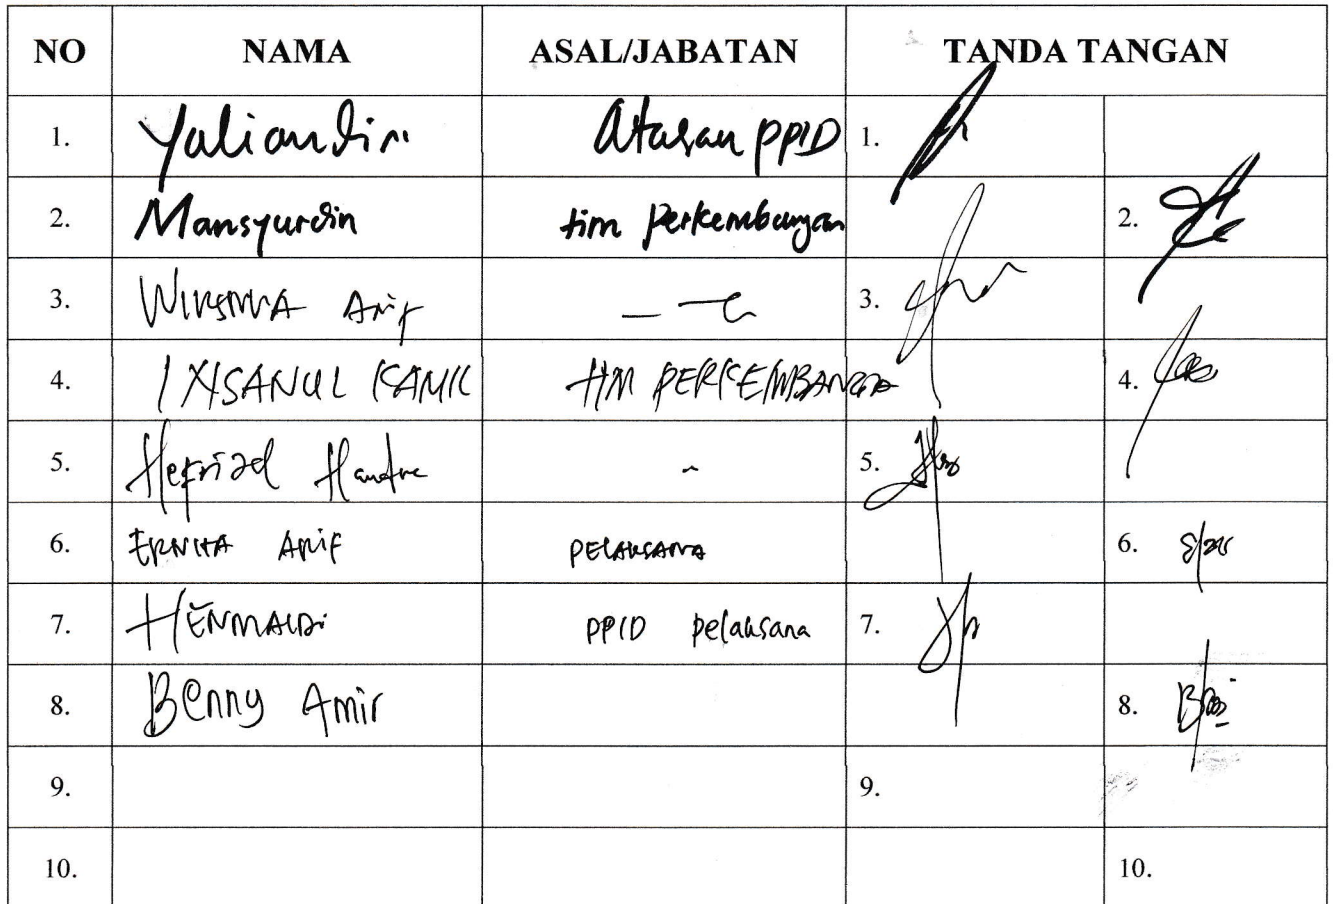 NO NAMA ASAL/JABATAN TANDA TANGAN
1. Yuliandri Atasan PPID 1.
2. Mansyurdin tim Perkembangan 2.
3. Arif 3.
4. IXHSANUL KAMIL TIM PERKEMBANGA 4.
5. Hefrizal Handra 5.
6. ERNITA ARIF PELAKSANA 6.
7. HENMAIDI PPID pelaksana 7.
8. Benny Amir 8.
9. 9.
10. 10.